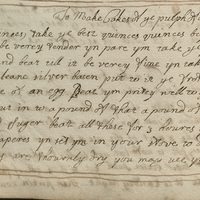 To Make Cakes of ye pulph of
quinces take ye best quinces quinces b
be verey tender yn pare ym take ye
and beat till it be verey fine yn tak
cleane silver bason put to it ye frot
te of an egg Beat ym prittey well to
put in wa pound of that a pound of
d suger beat all these for 3 houres
papores yn set ym in your stove to
are thorowly dry you may use y